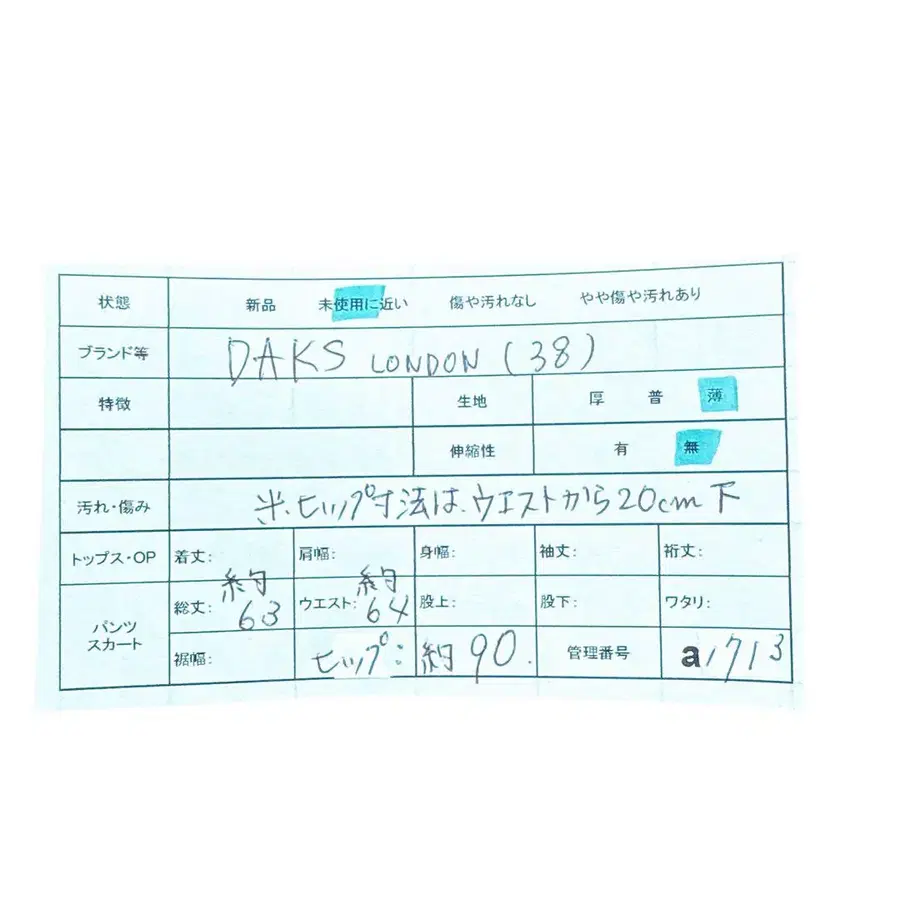 状態 新品 未使用に近い 傷や汚れなし やや傷や汚れあり
ブランド等 DAKS LONDON (38)
特徴 生地 厚 普 薄
伸縮性 有 無
汚れ・傷み ※.ヒップ寸法は、ウエストから20cm下
トップス・OP 着丈: 肩幅: 身幅: 袖丈: 裄丈:
パンツ スカート 総丈: 約63 ウエスト: 約64 股上: 股下: ワタリ:
裾幅: ヒップ: 約90. 管理番号 a1713